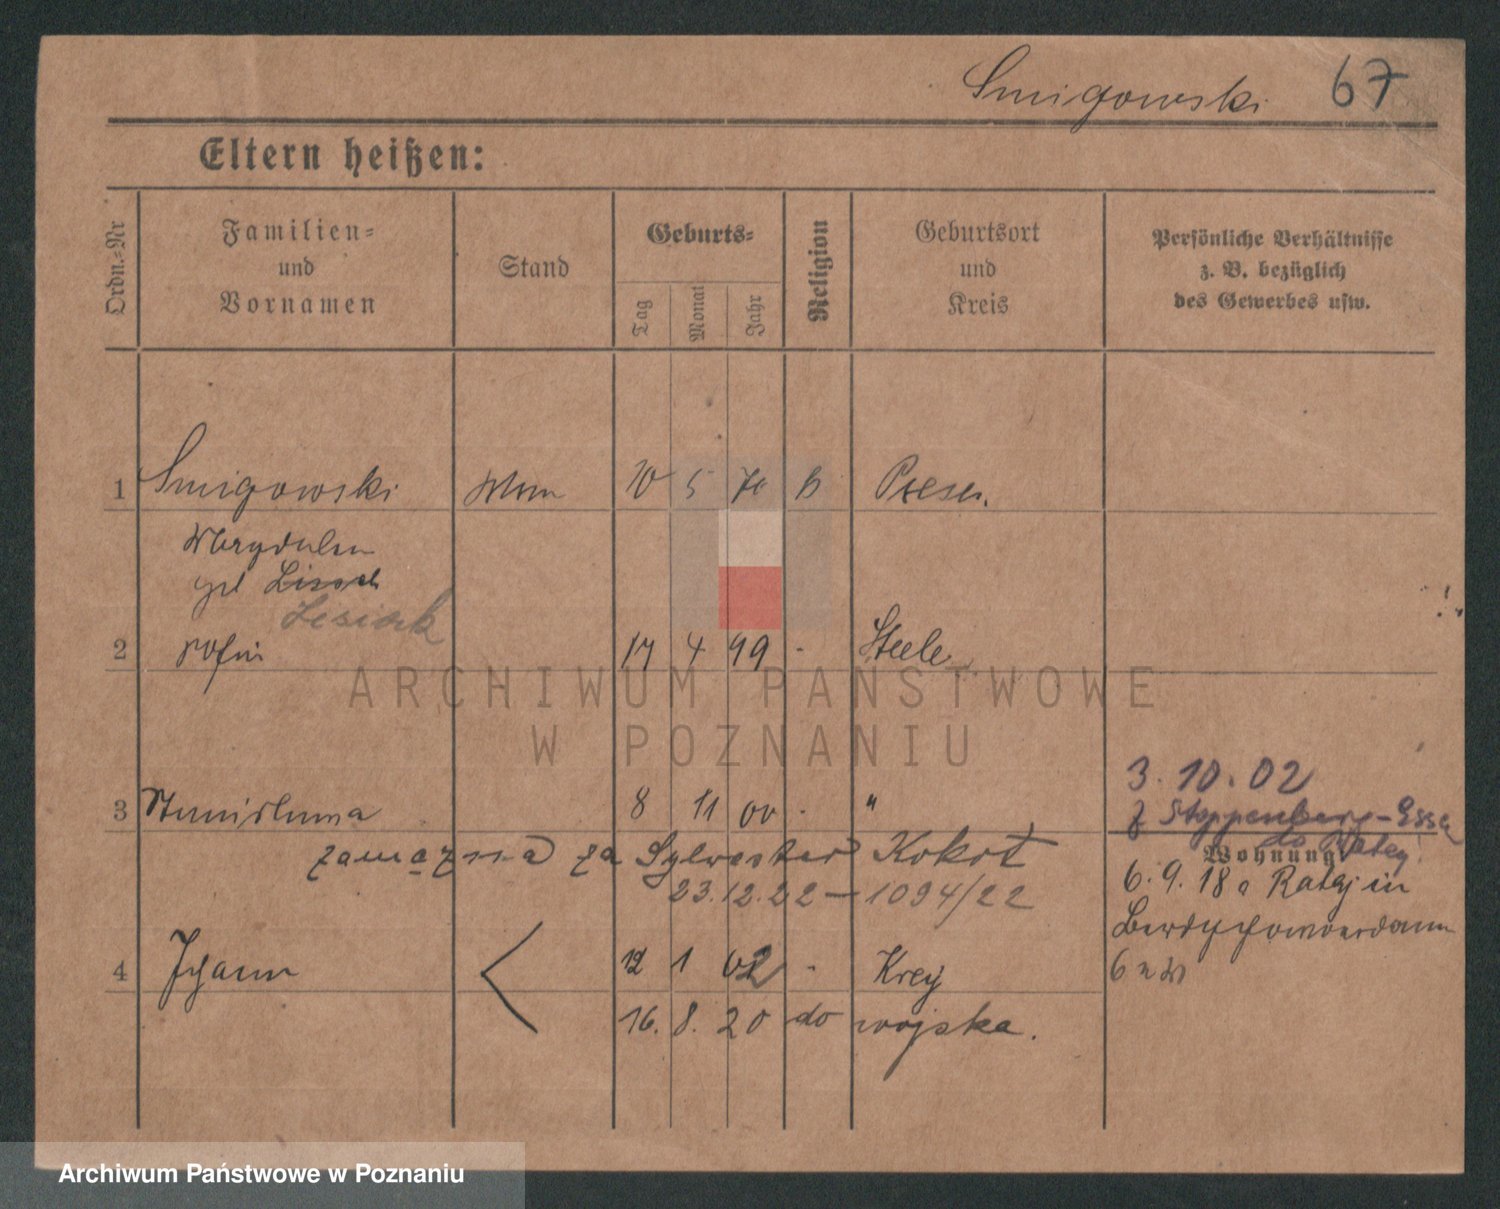 Smigowski 67
Eltern heißen:
Ordn.=Nr
Familien=
und
Vornamen
Stand
Geburts=
Tag
Monat
Jahr
Religion
Geburtsort
und
Kreis
Persönliche Verhältnisse
z. B. bezüglich
des Gewerbes usw.
1 Smigowski 10 5 70
Magdalena
Lesiak
2 Sofie 17 4 99 - Steele
3 Stanislawa 8 11 00 - "
3. 10. 02
z Stoppenberg-Essen
Wohnung
zamężna za Sylwester Kokot
23.12.22 – 1094/22
6. 9. 18 Rataj in
4 Johann 12 1 02 - Krey
16. 8. 20 do wojska.
ARCHIWUM PAŃSTWOWE
W POZNANIU
Archiwum Państwowe w Poznaniu